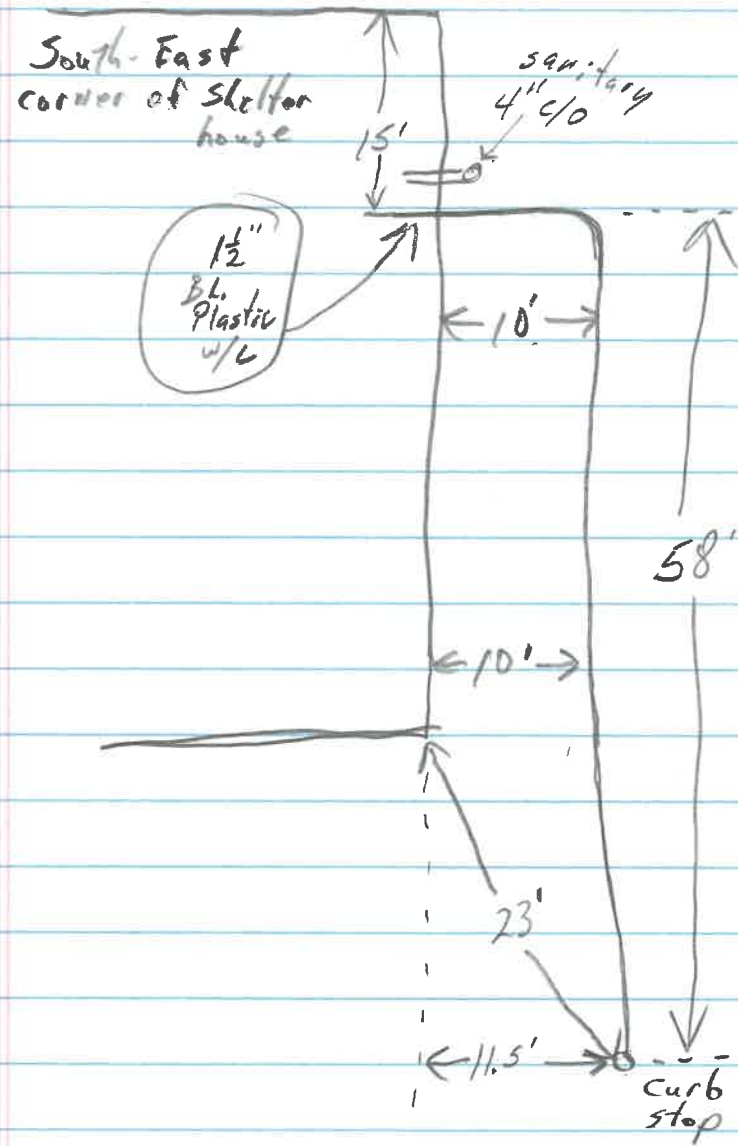 South-East
corner of Shelter
house
15'
sanitary
4" c/o
1½"
BL.
Plastic
w/L
10'
58'
10'
23'
11.5'
curb
stop